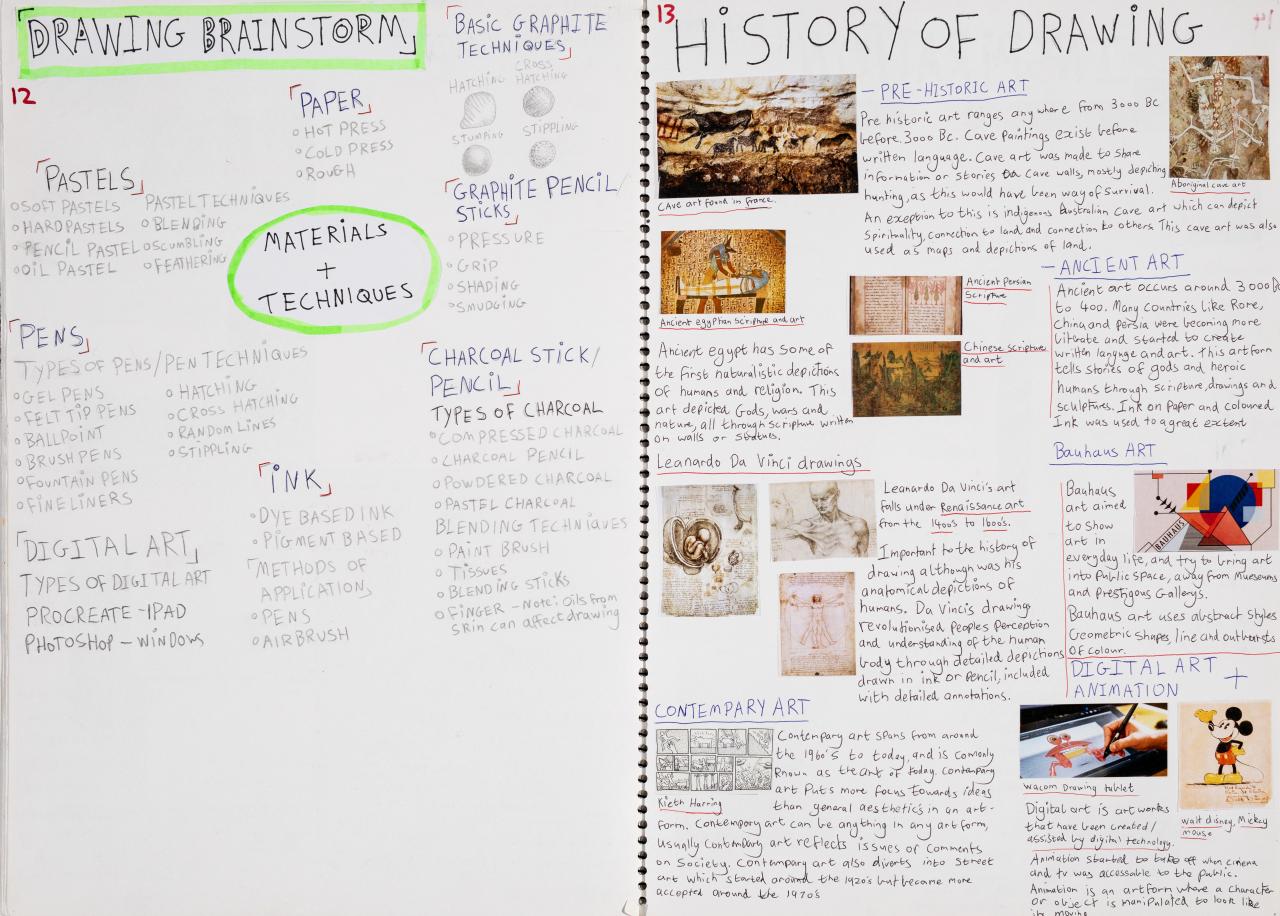 DRAWING BRAINSTORM
12
BASIC GRAPHITE
TECHNIQUES
HATCHING
CROSS
HATCHING
STUMPING
STIPPLING
PAPER
HOT PRESS
COLD PRESS
ROUGH
PASTELS
SOFT PASTELS
HARD PASTELS
PENCIL PASTEL
OIL PASTEL
PASTEL TECHNIQUES
BLENDING
SCUMBLING
FEATHERING
MATERIALS
+
TECHNIQUES
GRAPHITE PENCIL/
STICKS
PRESSURE
GRIP
SHADING
SMUDGING
PENS
TYPES OF PENS/PEN TECHNIQUES
GEL PENS
FELT TIP PENS
BALLPOINT
BRUSH PENS
FOUNTAIN PENS
FINELINERS
HATCHING
CROSS HATCHING
RANDOM LINES
STIPPLING
CHARCOAL STICK/
PENCIL
TYPES OF CHARCOAL
COMPRESSED CHARCOAL
CHARCOAL PENCIL
POWDERED CHARCOAL
PASTEL CHARCOAL
BLENDING TECHNIQUES
PAINT BRUSH
TISSUES
BLENDING STICKS
FINGER - Note: Oils from
skin can affect drawing
INK
DYE BASED INK
PIGMENT BASED
METHODS OF
APPLICATION
PENS
AIRBRUSH
DIGITAL ART
TYPES OF DIGITAL ART
PROCREATE - IPAD
PHOTOSHOP - WINDOWS
13
HISTORY OF DRAWING
- PRE-HISTORIC ART
Pre historic art ranges any where from 3000 Bc
before 3000 Bc. Cave paintings exist before
written language. Cave art was made to share
information or stories on cave walls, mostly depicting
hunting, as this would have been way of survival.
An exeption to this is indigenous Australian cave art which can depict
Spirituality, connection to land and connection to others. This cave art was also
used as maps and depictions of land.
CAve art found in france.
Aboriginal cave art
Ancient egyptian scripture and art
Ancient egypt has some of
the first naturalistic depictions
of humans and religion. This
art depicted Gods, wars and
nature, all through scripture written
on walls or statues.
Ancient Persian
Scripture
Chinese scripture
and art
- ANCIENT ART
Ancient art occurs around 3000 Bc
to 400. Many Countries like Rore,
China and Persia were becoming more
literate and started to create
written languge and art. This artform
tells stories of gods and heroic
humans through scripture, drawings and
sculptures. Ink on Paper and coloured
Ink was used to a great extent
Leanardo Da Vinci drawings
Leanardo Da Vinci's art
falls under Renaissance art
from the 1400's to 1600's.
Important to the history of
drawing although was his
anatomical depictions of
humans. Da Vincis drawings
revolutionised peoples perception
and understanding of the human
body through detailed depictions
drawn in ink or Pencil, included
with detailed annotations.
Bauhaus ART
BAUHAUS
Bauhaus
art aimed
to show
art in
everyday life, and try to bring art
into Public space, away from Museums
and Prestigous Gallerys.
Bauhaus art uses abstract styles
Geometric shapes, line and outbursts
of colour.
CONTEMPARY ART
Kieth Harring
Contempary art spans from around
the 1960's to today, and is comonly
known as the art of today. Contempary
art Puts more focus towards ideas
than general aesthetics in an art-
form. Contempory art can be anything in any art form,
usually Contempory art reflects issues of comments
on Society. Contempary art also diverts into street
art which started around the 1920's but became more
accepted around the 1970's
DIGITAL ART +
ANIMATION
wacom Drawing tablet
walt disney, Mickey
mouse
Digital art is art works
that have been created/
assisted by digital technology.
Animation started to take off when cinema
and tv was accessable to the public.
Animation is an artform where a character
or object is manipulated to look like
its moving